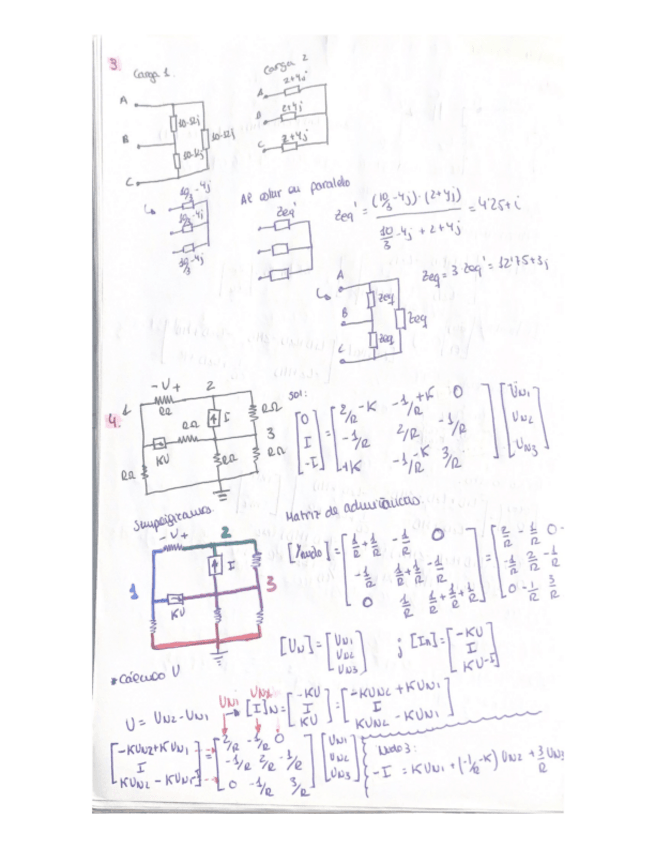 3.
Carga 1.
Carga 2
A
B
C
10-12j
10-12j
10-12j
A
B
C
2+4j
2+4j
2+4j
10/3-4j
10/3-4j
10/3-4j
Al estar en paralelo
Zeq'
Zeq' = (10/3-4j)·(2+4j) / (10/3-4j+2+4j) = 4'25+i
Zeq = 3 Zeq' = 12'75+3j
A
B
C
Zeq
Zeq
Zeq
4.
1
- U +
2
RΩ
RΩ
I
RΩ
3
KU
RΩ
RΩ
RΩ
Sol:
[0 I -I] = [2/R-K -1/R+K 0 -1/R 2/R -1/R +K -1/R-K 3/R] [UN1 UN2 UN3]
Simplificamos
- U +
2
I
1
3
KU
Matriz de admitancias
[Ynudo] = [1/R+1/R -1/R 0 -1/R 1/R+1/R -1/R 0 1/R 1/R+1/R+1/R] = [2/R -1/R 0 -1/R 2/R -1/R 0 -1/R 3/R
[UN] = [UN1 UN2 UN3] ; [In] = [-KU I KU-I]
*Cálculo U
U = UN2-UN1
UN1
→ [I]N = [-KU I KU] = [-KUN2+KUN1 I KUN2-KUN1]
[-KUN2+KUN1 I KUN2-KUN1] = [2/R -1/R 0 -1/R 2/R -1/R 0 -1/R 3/R] [UN1 UN2 UN3]
Nudo 3:
-I = KUN1 + (-1/R-K) UN2 + 3/R UN3